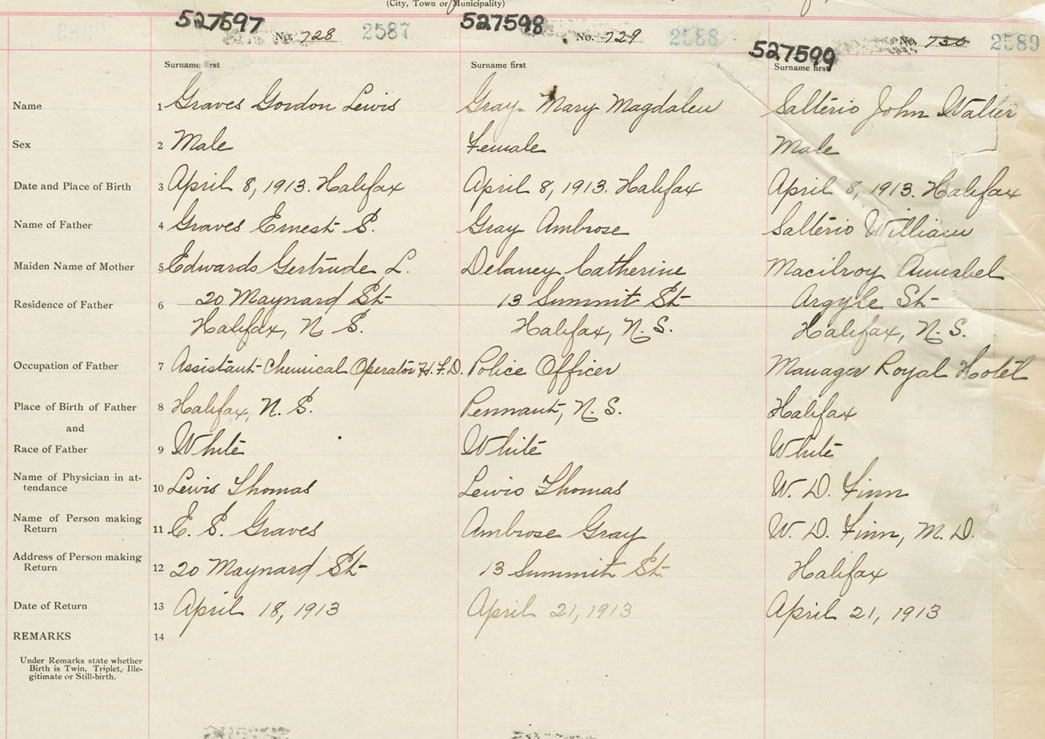 (City, Town or Municipality)
527597 No. 728 2587 527598 No. 729 2588 527599 No. 730 2589
Surname first Surname first Surname first
Name 1 Graves Gordon Lewis Gray Mary Magdalen Salterio John Walter
Sex 2 Male Female Male
Date and Place of Birth 3 April 8, 1913. Halifax April 8, 1913. Halifax April 8, 1913. Halifax
Name of Father 4 Graves Ernest S. Gray Ambrose Salterio William
Maiden Name of Mother 5 Edwards Gertrude L. Delaney Catherine Macilroy Annabel
Residence of Father 6 20 Maynard St 13 Summit St Argyle St
Halifax, N.S. Halifax, N.S. Halifax, N.S.
Occupation of Father 7 Assistant Chemical Operator H.F.D. Police Officer Manager Royal Hotel
Place of Birth of Father 8 Halifax, N.S. Pennant, N.S. Halifax
and
Race of Father 9 White White White
Name of Physician in at-
tendance 10 Lewis Thomas Lewis Thomas W. D. Finn
Name of Person making
Return 11 E. S. Graves Ambrose Gray W. D. Finn, M.D.
Address of Person making
Return 12 20 Maynard St 13 Summit St Halifax
Date of Return 13 April 18, 1913 April 21, 1913 April 21, 1913
REMARKS 14
Under Remarks state whether
Birth is Twin, Triplet, Ille-
gitimate or Still-birth.